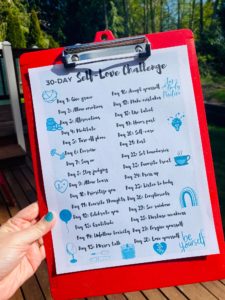 30-DAY Self-Love Challenge
Day 1: Give grace
Day 2: Allow emotions
Day 3: Affirmations
Day 4: Meditate
Day 5: Turn off phone
Day 6: Exercise
Day 7: Say no
Day 8: Stop judging
Day 9: Allow tears
Day 10: Prioritize you
Day 11: Rewrite Thoughts
Day 12: Celebrate you
Day 13: Gratitude
Day 14: Unfollow toxicity
Day 15: Mirror talk
Day 16: Accept yourself
Day 17: Make mistakes
Day 18: Use talent
Day 19: Honor past
Day 20: Self-care
Day 21: Rest
Day 22: Set boundaries
Day 23: Favorite treat
Day 24: Praise
Day 25: Listen to body
Day 26: Compliments
Day 27: See wisdom
Day 28: Embrace weakness
Day 29: Forgive yourself
Day 30: Love yourself
Body
Positive
be
yourself